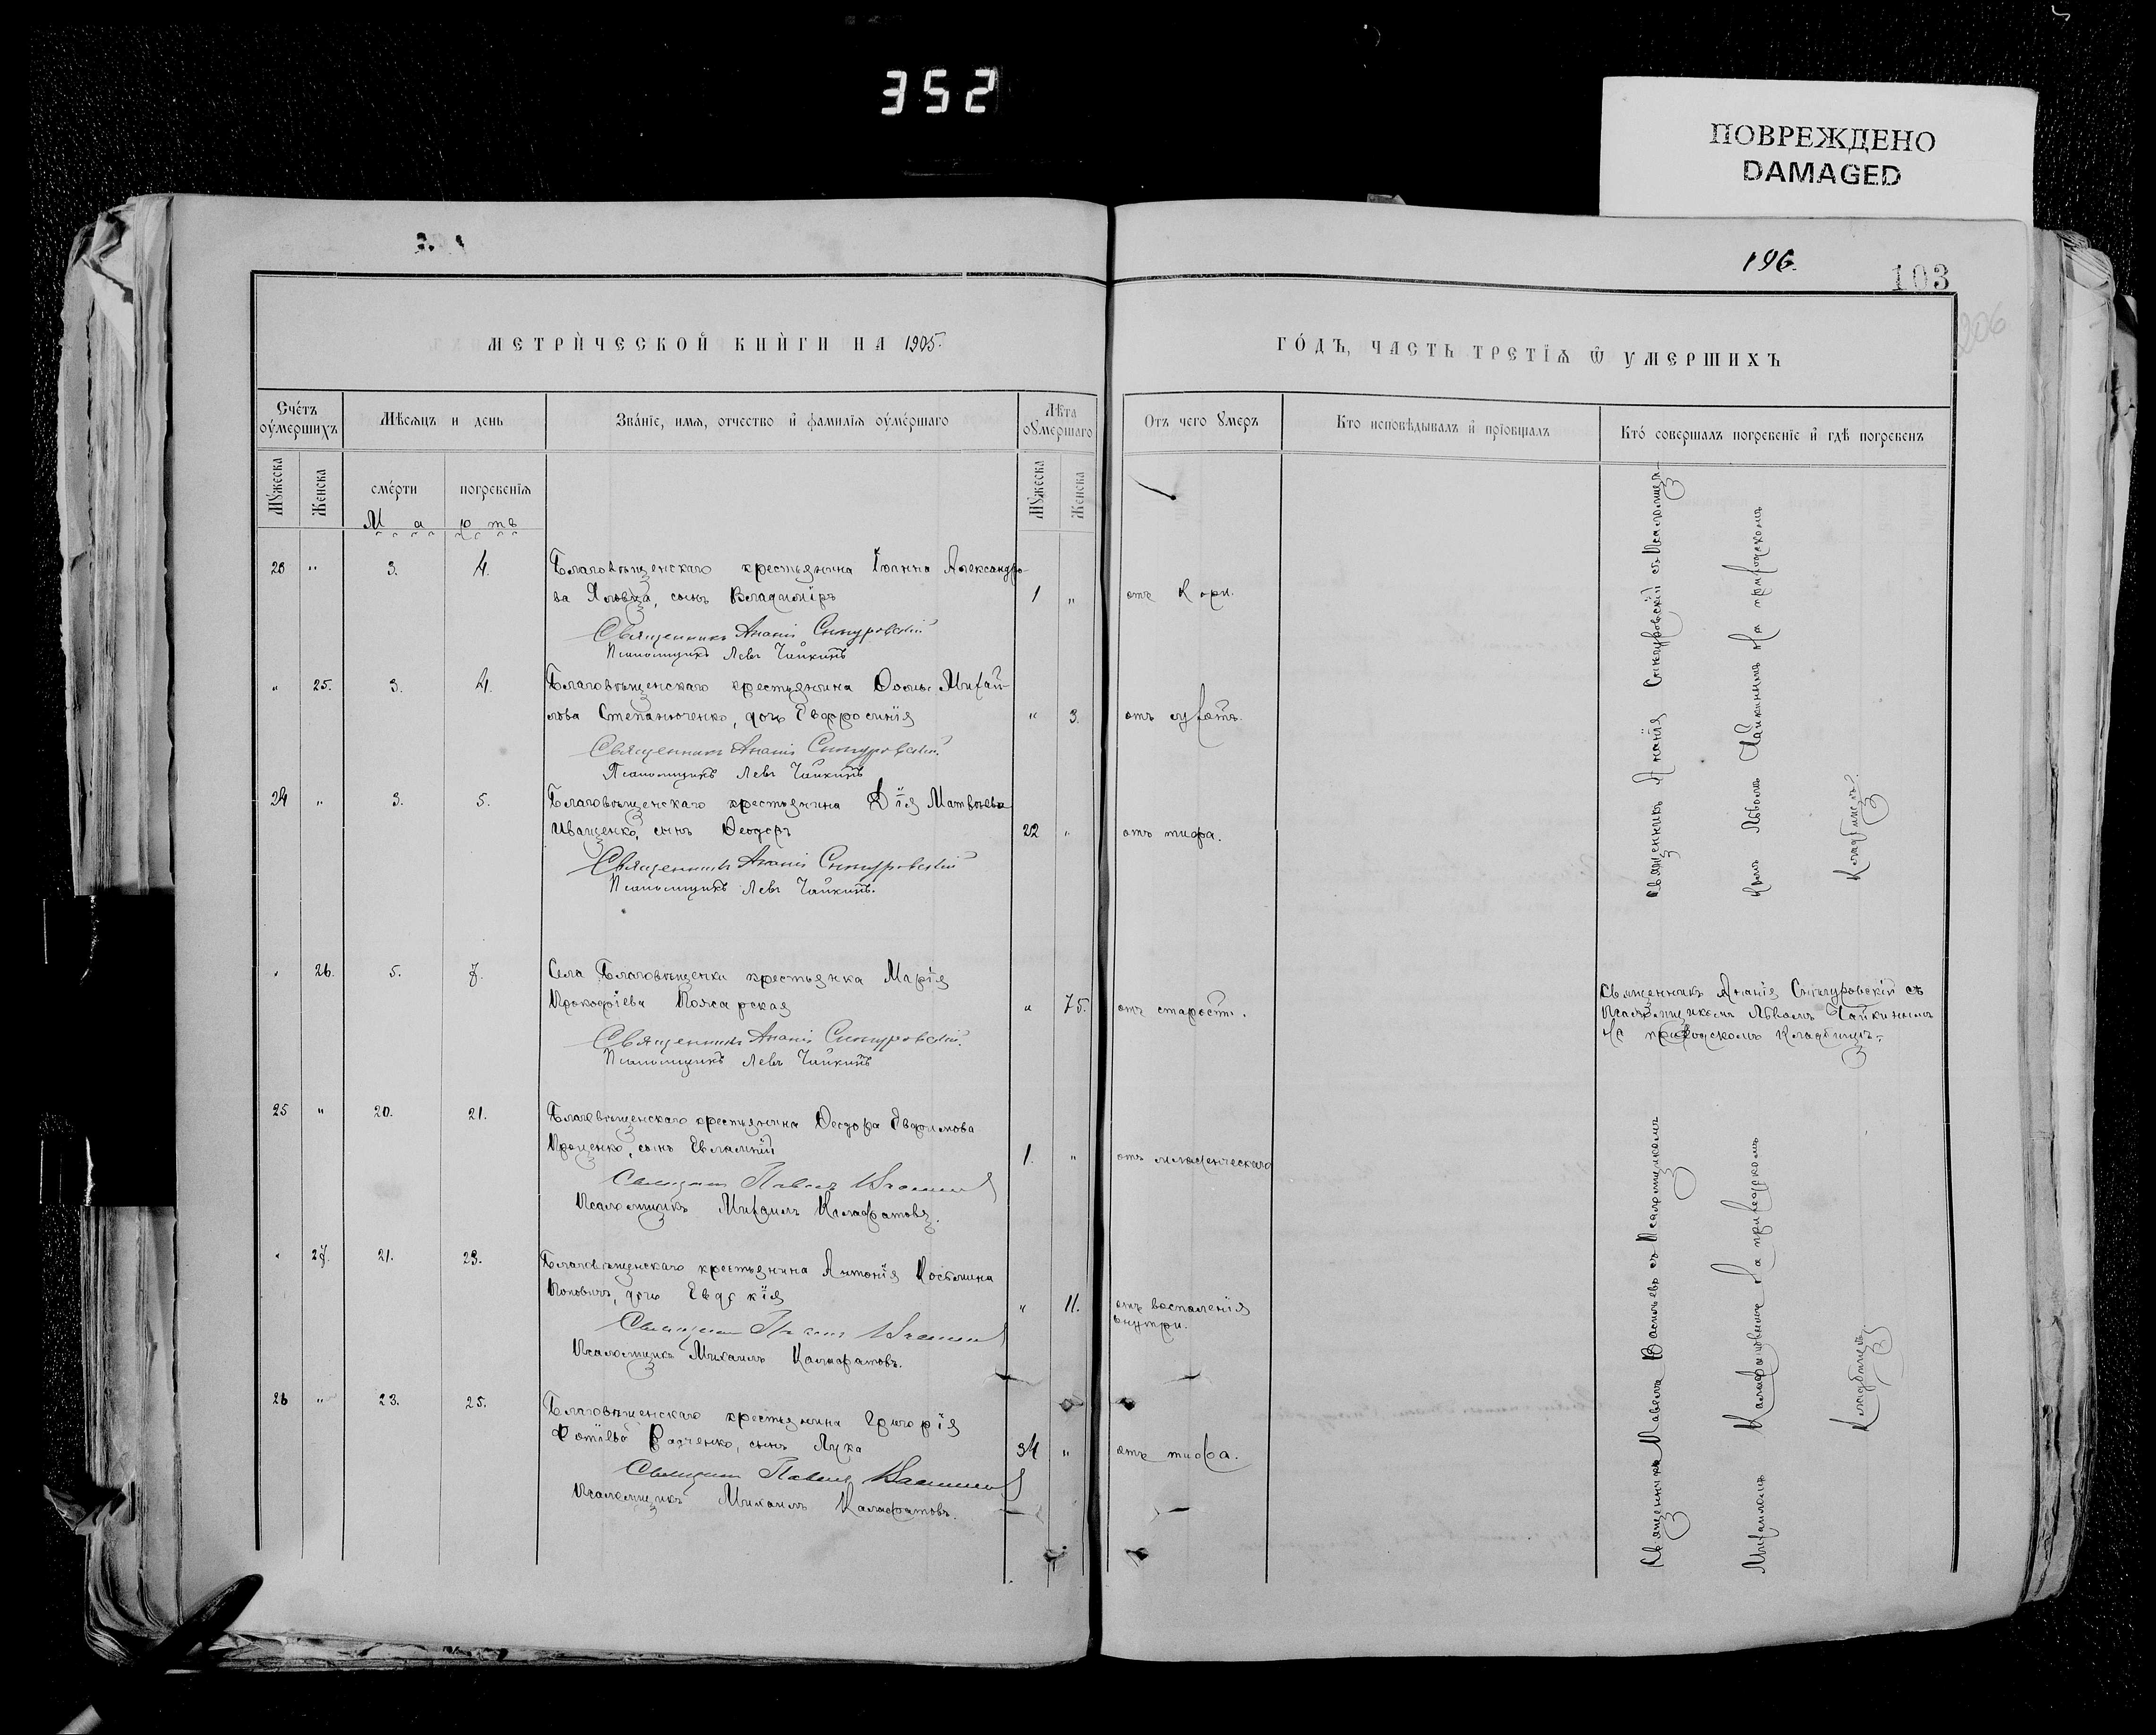 352
ПОВРЕЖДЕНО
DAMAGED
196.
103
206
МЕТРИЧЕСКОЙ КНИГИ НА 1905.
ГОДЪ, ЧАСТЬ ТРЕТІЯ Ѿ УМЕРШИХЪ
Счетъ умершихъ
Мѣсяцъ и день
Званіе, имя, отчество и фамилія умершаго
Лѣта умершаго
Отъ чего умеръ
Кто исповѣдывалъ и пріобщалъ
Кто совершалъ погребеніе и гдѣ погребенъ
Мужеска
Женска
смерти
погребенія
Мужеска
Женска
Мартъ
23 " 3. 4. Благовѣщенскаго крестьянина Іоанна Александро-
ва Яловца, сынъ Владиміръ 1 " отъ кори.
Священникъ Ананія Снѣгуровскій
Псаломщикъ Левъ Чайкинъ
" 25. 3. 4. Благовѣщенскаго крестьянина Ѳомы Михай-
лова Степанюченко, дочь Евфросинія " 3.
Священникъ Ананія Снѣгуровскій
Псаломщикъ Левъ Чайкинъ
24 " 3. 5. Благовѣщенскаго крестьянина Матвѣева
Иващенко, сынъ Ѳеодоръ 22 " отъ тифа.
Священникъ Ананія Снѣгуровскій
Псаломщикъ Левъ Чайкинъ.
Священникъ Ананія Снѣгуровскій съ Псаломщи-
комъ Львомъ Чайкинымъ на приходскомъ
кладбищѣ.
" 26. 5. 7. Села Благовѣщенки крестьянка Марія
Прокофіева Пожарская " 75. отъ старости.
Священникъ Ананія Снѣгуровскій
Псаломщикъ Левъ Чайкинъ
Священникъ Ананія Снѣгуровскій съ
Псаломщикомъ Львомъ Чайкинымъ
на приходскомъ кладбищѣ.
25 " 20. 21. Благовѣщенскаго крестьянина Ѳеодора Евфимова
Проценко, сынъ Евлампій 1. " отъ младенческаго
Священникъ Павелъ Васильевъ
Псаломщикъ Михаилъ Калафатовъ.
" 27. 21. 23. Благовѣщенскаго крестьянина Антонія Косьмина
Поповичъ, дочь Евдокія " 11. отъ воспаленія
внутри.
Священникъ Павелъ Васильевъ
Псаломщикъ Михаилъ Калафатовъ.
26 " 23. 25. Благовѣщенскаго крестьянина Григорія
Фотіева Радченко, сынъ Лука 34 " отъ тифа.
Священникъ Павелъ Васильевъ
Псаломщикъ Михаилъ Калафатовъ.
Священникъ Павелъ Васильевъ съ Псаломщикомъ
Михаиломъ Калафатовымъ на приходскомъ
кладбищѣ.